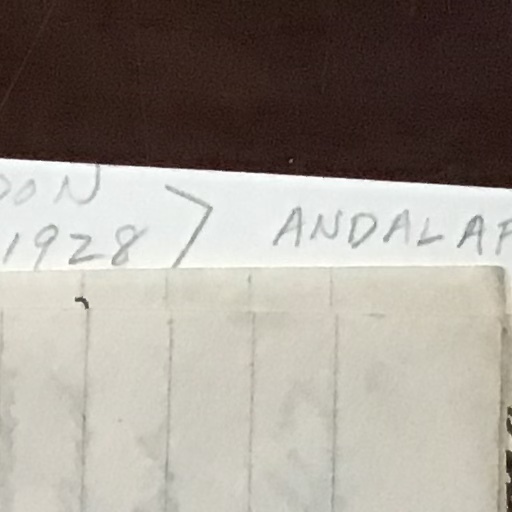 ON
1928
ANDALA